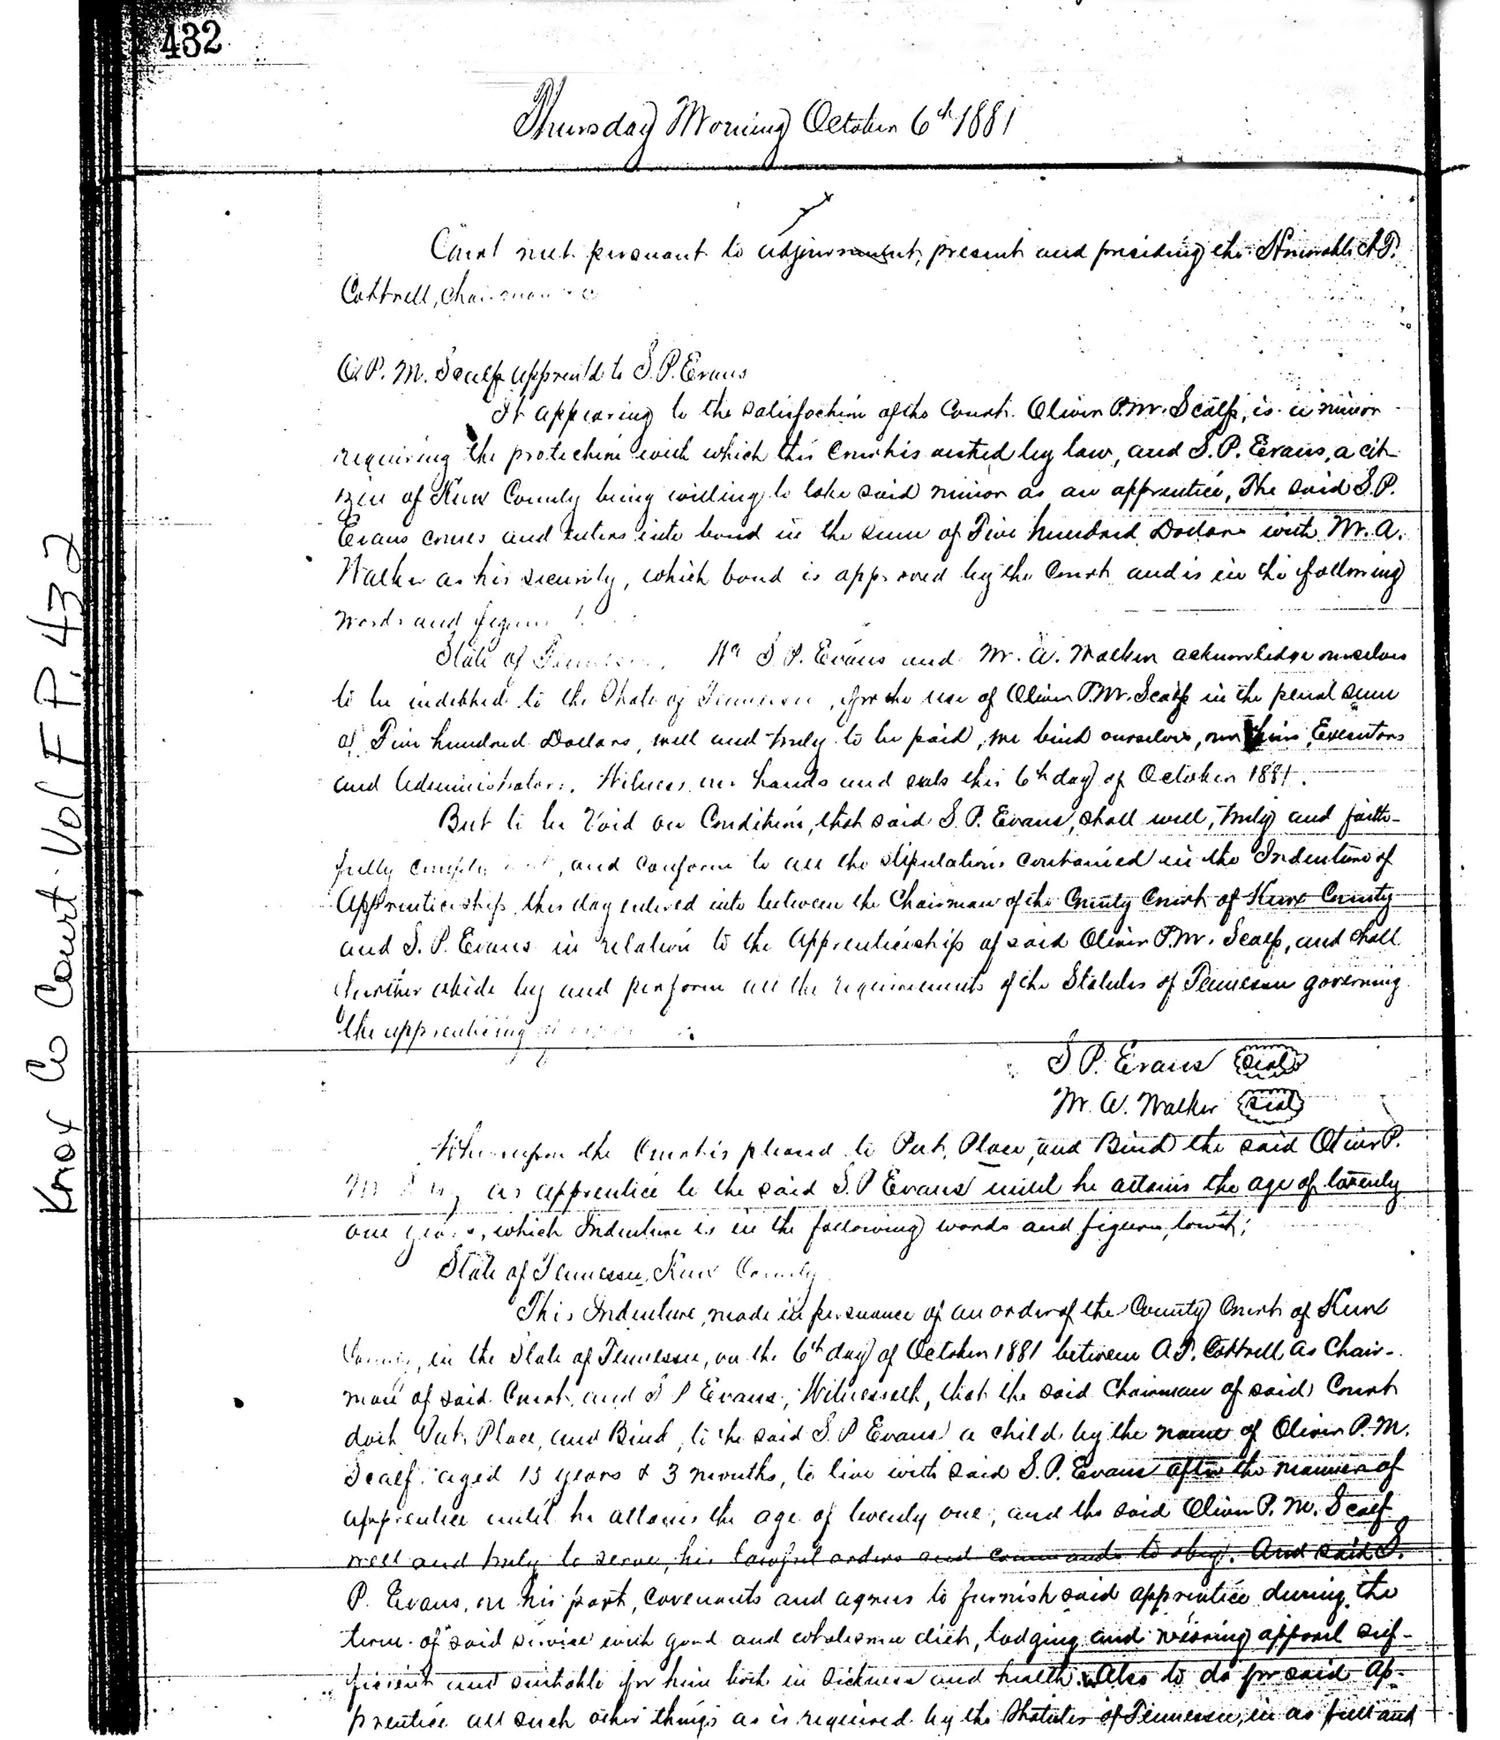 432
Thursday Morning October 6th 1881
Court met pursuant to adjournment, present and presiding the Honorable A.P.
Cottrell, Chairman &c
O.P.M. Scalf apprentd to S.P. Evans
It appearing to the satisfaction of the Court. Oliver P.M. Scalf, is a minor
requiring the protection with which this Court is vested by law, and S.P. Evans, a cit-
izen of Knox County being willing to take said minor as an apprentice, The said S.P.
Evans comes and enters into bond in the sum of Five hundred Dollars with M. A.
Walker as his security, which bond is approved by the Court and is in the following
words and figures
State of Tennessee. We S.P. Evans and M. A. Walker acknowledge ourselves
to be indebted to the State of Tennessee, for the use of Oliver P.M. Scalf in the penal sum
of Five hundred Dollars, well and truly to be paid, we bind ourselves, our heirs, Executors
and Administrators. Witness our hands and seals this 6th day of October 1881.
But to be Void on Condition, that said S.P. Evans, shall well, truly and faith-
fully comply with, and conform to all the stipulations contained in the Indenture of
Apprenticeship this day entered into between the Chairman of the County Court of Knox County
and S.P. Evans in relation to the Apprenticeship of said Oliver P.M. Scalf, and shall
further abide by and perform all the requirements of the Statutes of Tennessee governing
the apprenticing
S.P. Evans Seal
M. A. Walker Seal
Whereupon the Court is pleased to Put, Place, and Bind the said Oliver P.
M as apprentice to the said S.P Evans until he attains the age of twenty
one years, which Indenture is in the following words and figures, towit;
State of Tennessee, Knox County
This Indenture, made in persuance of an order of the County Court of Knox
County, in the State of Tennessee, on the 6th day of October 1881 between A.P. Cottrell as Chair-
man of said Court, and S P Evans, Witnesseth, that the said Chairman of said Court
doth Put, Place, and Bind, to the said S.P Evans a child by the name of Oliver P.M.
Scalf aged 15 years & 3 months, to live with said S.P. Evans after the manner of
apprentice until he attains the age of twenty one, and the said Oliver P.M. Scalf
well and truly to serve, his lawful orders and commands to obey. And said S.
P. Evans, on his part, covenants and agrees to furnish said apprentice during the
term of said service with good and wholesome diet, lodging and wearing apparel suf-
ficient and suitable for him both in sickness and health. Also to do for said ap-
prentice all such other things as is required by the Statutes of Tennessee, in as full and
Knox Co Court Vol F P. 432